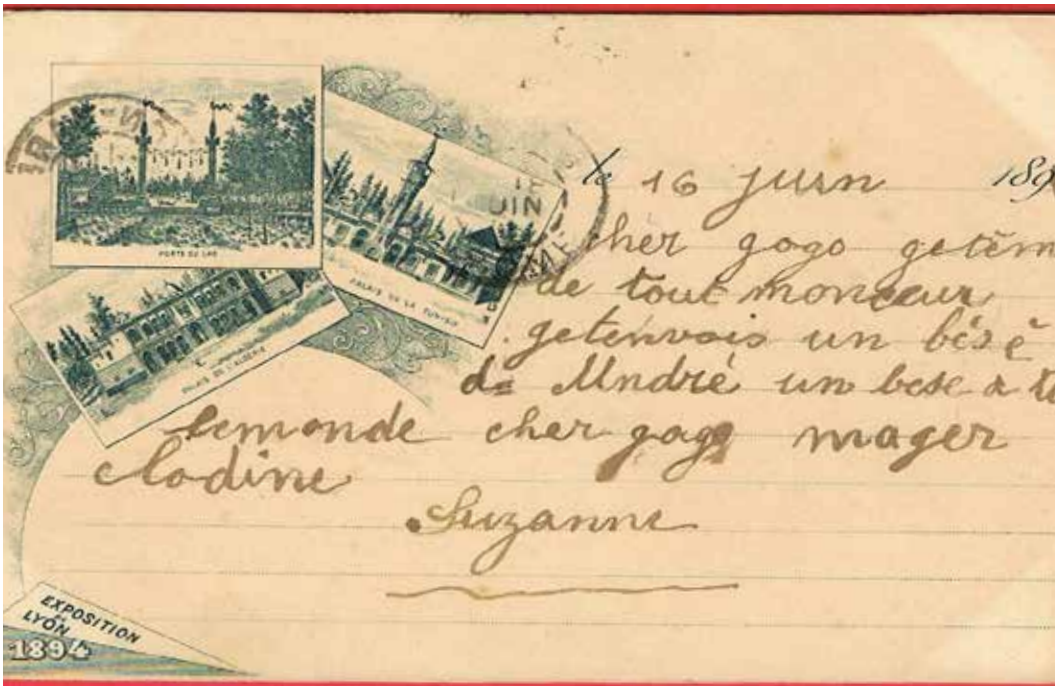 PORTE DU LAC
PALAIS DE LA TUNISIE
PALAIS DE L'ALGÉRIE
UIN
le 16 juin 189
cher gogo getem
de tout monceur
getenvois un bése
de André un bese a to
lemonde cher gogo mager
clodine
Suzanne
EXPOSITION
DE
LYON
1894